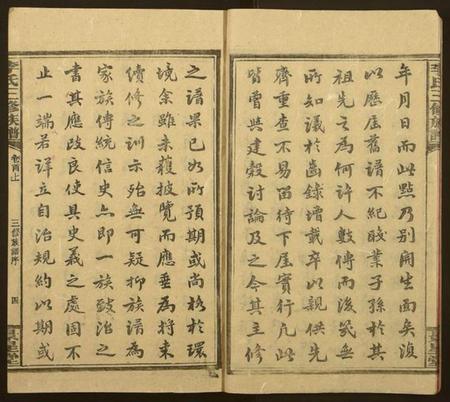 年月日而此點乃別開生面矣復
以歷屆舊譜不紀職業子孫於其
祖先之為何許人數傳而後竟無
所知議於齒錄增載卒以親供先
齊重查不易留待下屆實行凡此
皆曾與建毅討論及之今其主修
李氏三修族譜
之譜果已如所預期或尚格於環
境余雖未獲披覽而應垂為將來
續修之訓示殆無可疑抑族譜為
家族傳統信史亦即一族政治之
書其應改良使具史義之處固不
止一端若詳立自治規約以期或
李氏三修族譜
卷首上
三修族譜序
四